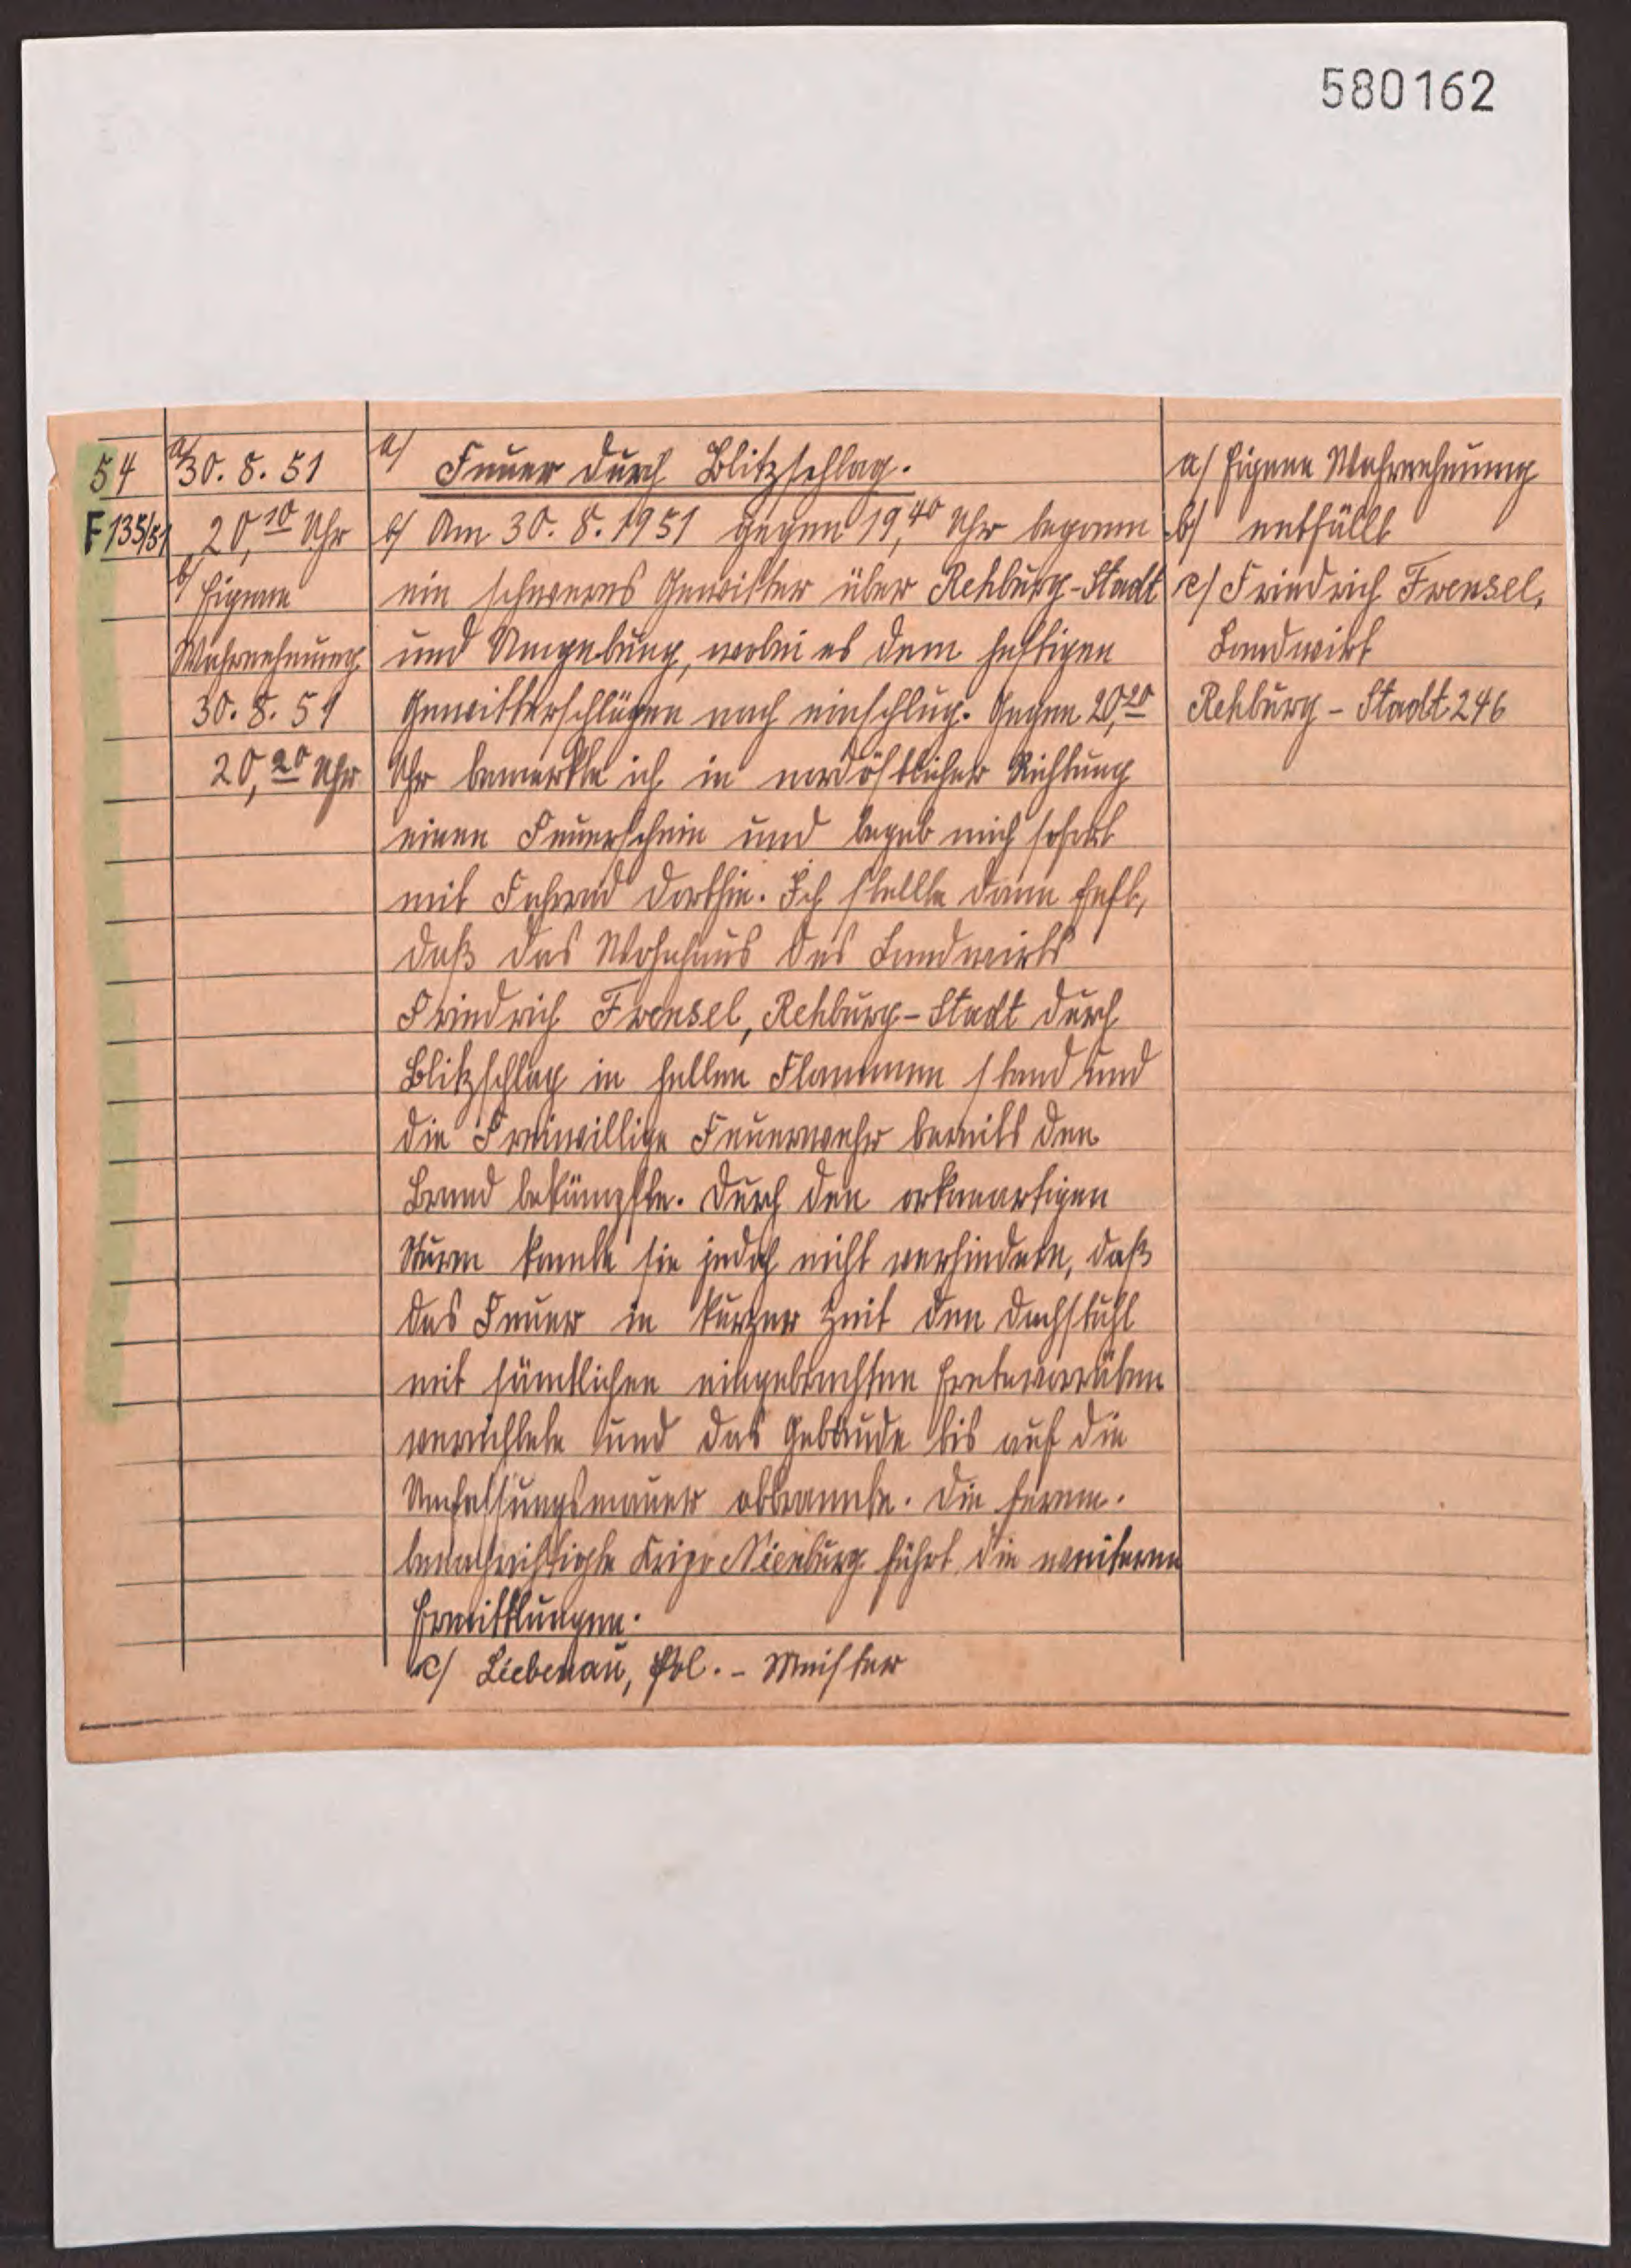 580162
54
F 135/51
a/ 30. 8. 51
20,10 Uhr
b/ Eigene
Wahrnehmung
30. 8. 51
20,20 Uhr
a/ Feuer durch Blitzschlag.
b/ Am 30. 8. 1951 gegen 19,40 Uhr begann
ein schweres Gewitter über Rehburg-Stadt
und Umgebung, wobei es dem heftigen
Gewitterschlägen nach einschlug. Gegen 20,20
Uhr bemerkte ich in nordöstlicher Richtung
einen Feuerschein und begab mich sofort
mit Fahrrad dorthin. Ich stellte dann fest,
daß das Wohnhaus des Landwirts
Friedrich Frensel, Rehburg-Stadt durch
Blitzschlag in hellen Flammen stand und
die Freiwillige Feuerwehr bereits den
Brand bekämpfte. Durch den orkanartigen
Sturm konnte sie jedoch nicht verhindern, daß
das Feuer in kurzer Zeit den Dachstuhl
mit sämtlichen eingebrachten Erntevorräten
vernichtete und das Gebäude bis auf die
Umfassungsmauer abbrannte. Die fernm.
benachrichtigte Kripo Nienburg führt die weiteren
Ermittlungen.
c/ Liebenau, Pol. - Meister
a/ Eigene Wahrnehmung
b/ entfällt
c/ Friedrich Frensel,
Landwirt
Rehburg - Stadt 246